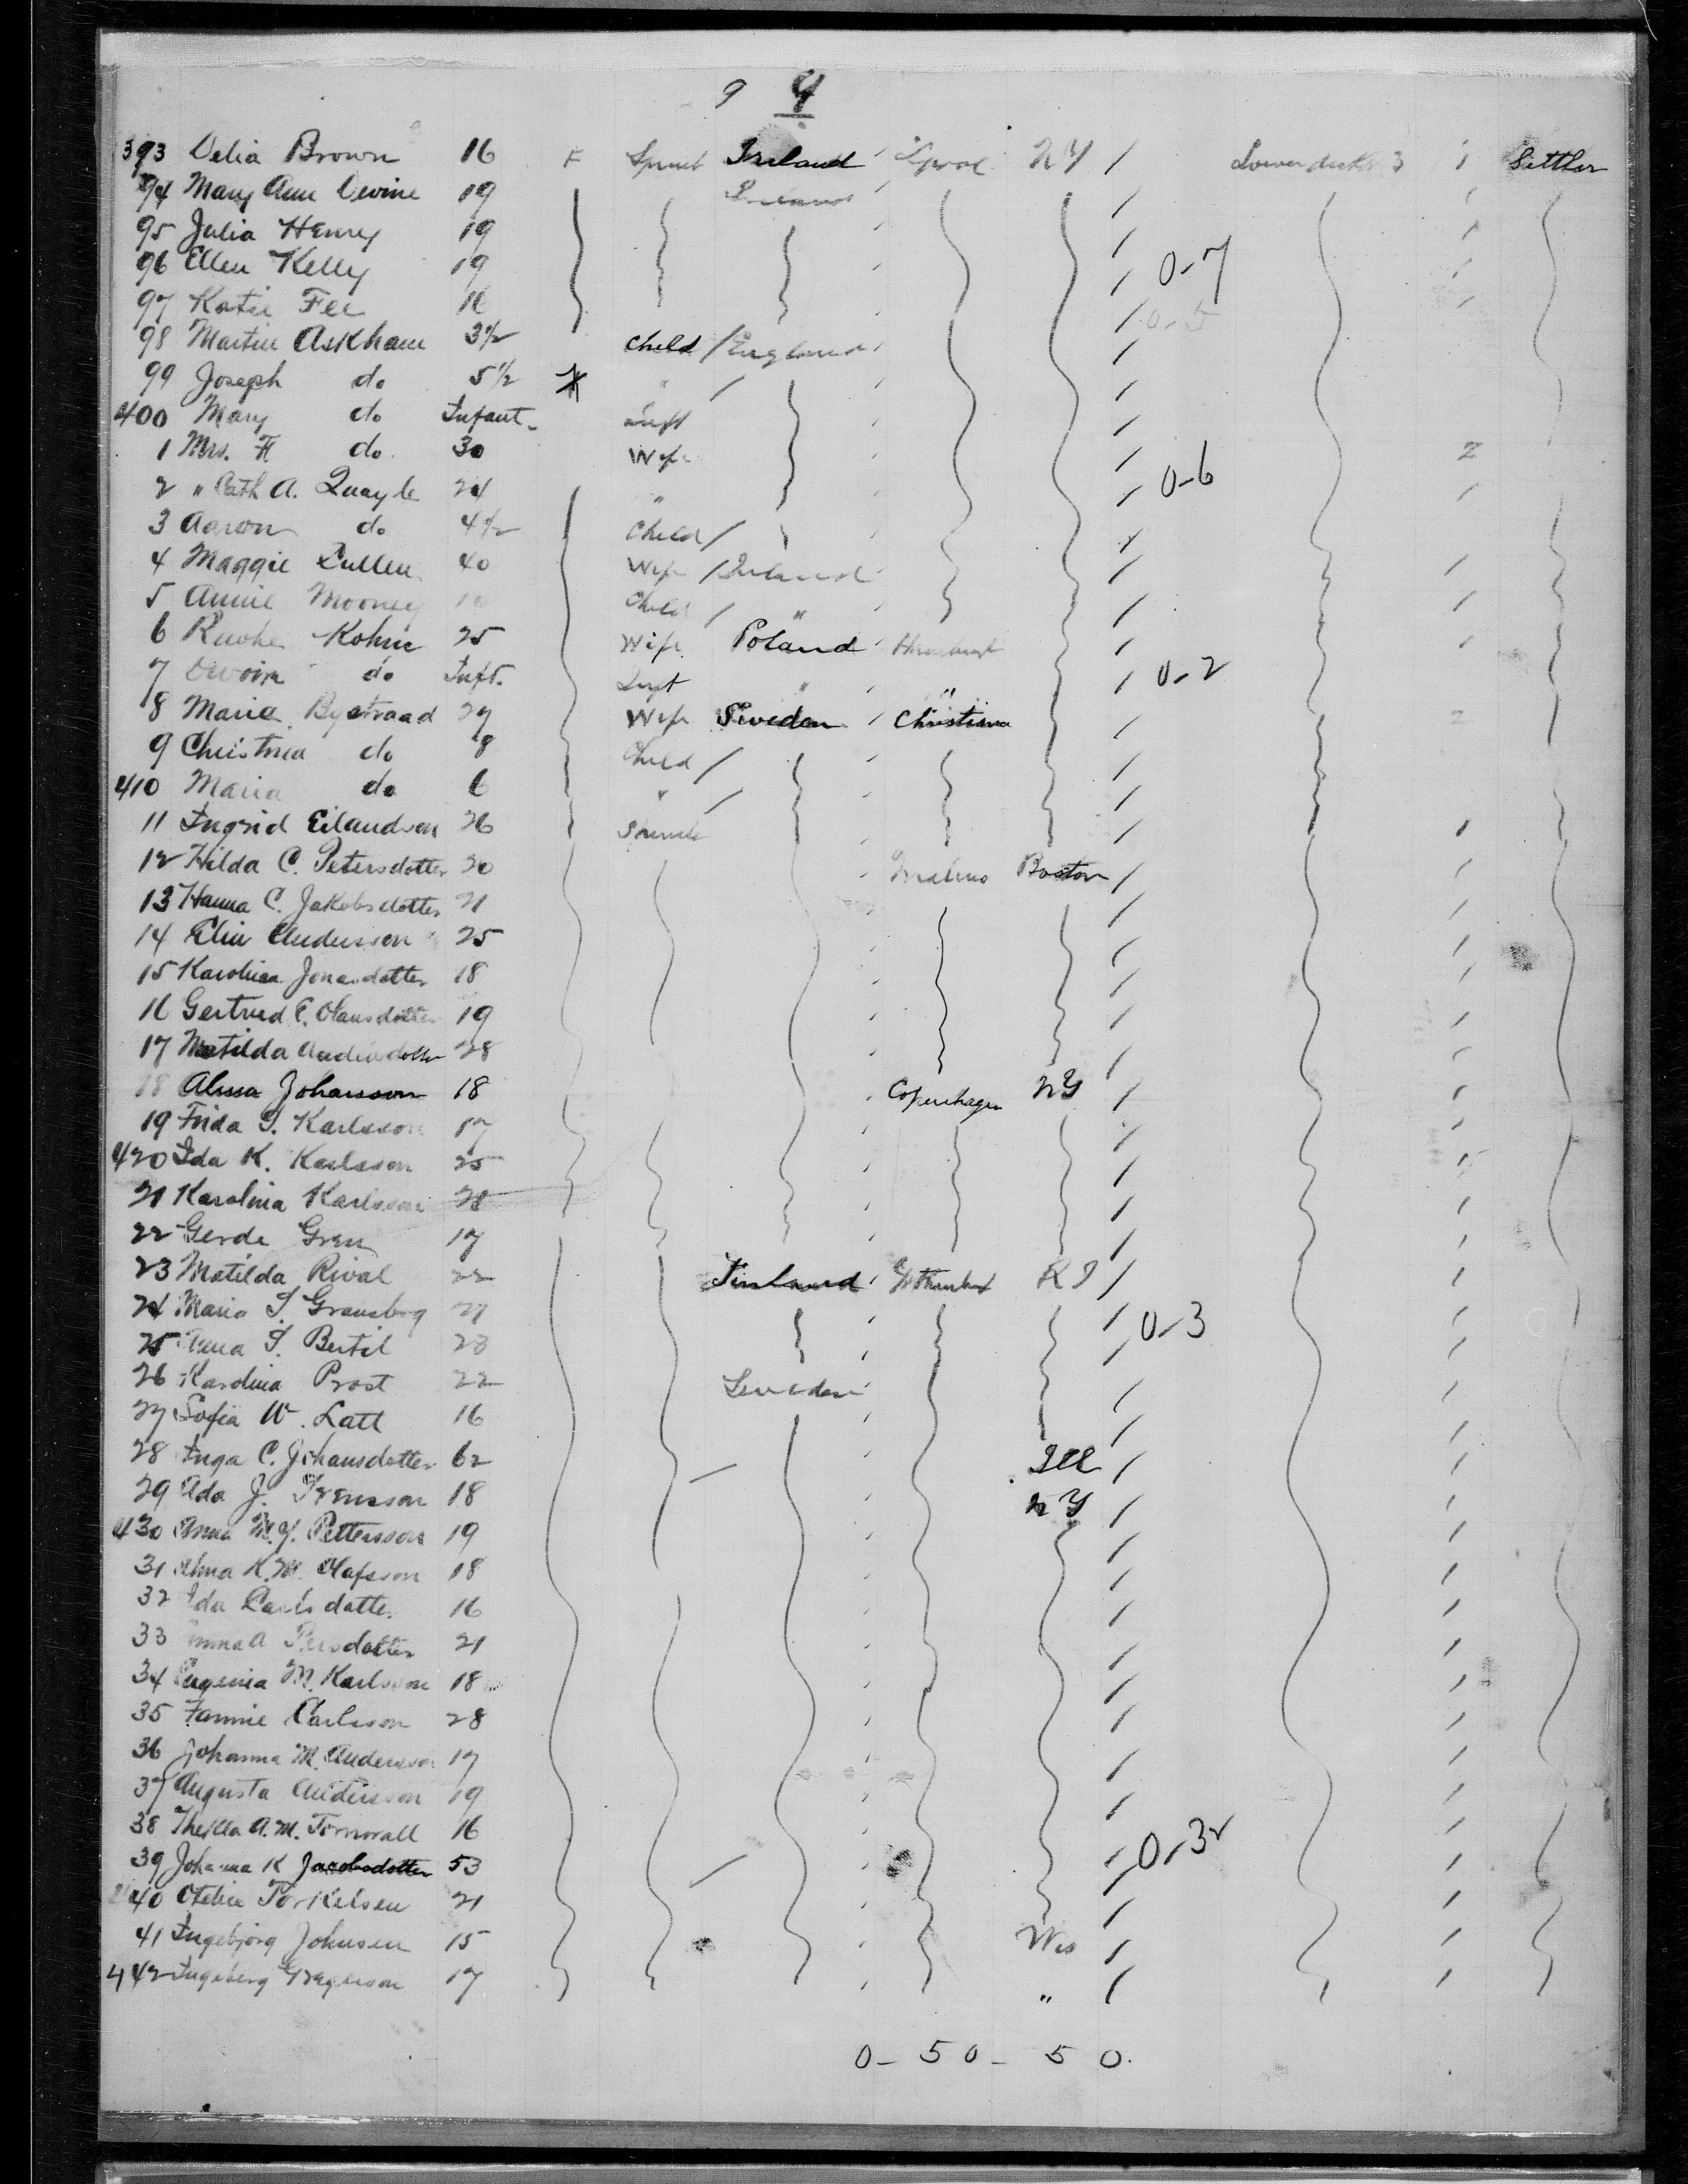 9 4
393 Delia Brown 16 F Spinst Ireland L'pool NY / Lowerdeck 3 1 Settler
94 Mary Ann Devine 19 Ireland /
95 Julia Henry 19 /
96 Ellen Kelly 19 / 0-7
97 Katie Fee 16 / 0-5
98 Martin Askham 3½ Child / England /
99 Joseph do 5½ " / /
400 Mary do Infant Inft /
1 Mrs. F. do 30 Wife / 2
2 " Cath A. Quayle 24 " / 0-6
3 Aaron do 4½ Child / /
4 Maggie Cullen 40 Wife / Ireland /
5 Annie Mooney Child / " /
6 Kohne 25 Wife Poland /
7 do Inft. Inft " " / 0-2
8 Maria Bystraad 29 Wife Sweden Christiana / 2
9 Christina do 8 Child / /
410 Maria do 6 " / /
11 Ingrid Eilandson 26 Spinster /
12 Hilda C. Petersdotter 20 Malmo Boston /
13 Hanna C. Jakobsdotter 21 /
14 Elin Andersson 25 /
15 Karolina Jonasdotter 18 /
16 Gertrud E. Olausdotter 19 /
17 Matilda 28 /
18 Alma Johansson 18 Copenhagen NY /
19 Frida S. Karlsson 17 /
420 Ida K. Karlsson 25 /
21 Karolina Karlsson 28 /
22 Gerda Gren 17 /
23 Matilda Rival 22 Finland R I /
24 Maria S. Gransbog 27 / 0-3
25 Anna S. Bertil 23 /
26 Karolina Prost 22 Sweden /
27 Sofia W. Latt 16 /
28 Inga C. Johansdotter 62 / Ill /
29 Ada J. Svensson 18 NY /
430 Anna M. Y. Pettersson 19 /
31 Alma K. M. Olafsson 18 /
32 Ida Carlsdotter 16 /
33 Emma A Persdotter 21 /
34 Eugenia M. Karlsson 18 /
35 Fannie Carlsson 28 /
36 Johanna M. Andersson 17 /
37 Augusta Andersson 19 /
38 Theckla A. M. Tornwall 16 /
39 Johanna K Jacobsdotter 53 / / 0-32
440 Otelia Torkelsen 21 /
41 Ingebjorg Johnsen 15 Wis /
442 Ingeborg Gregerson 17 " /
0 - 50 - 50.